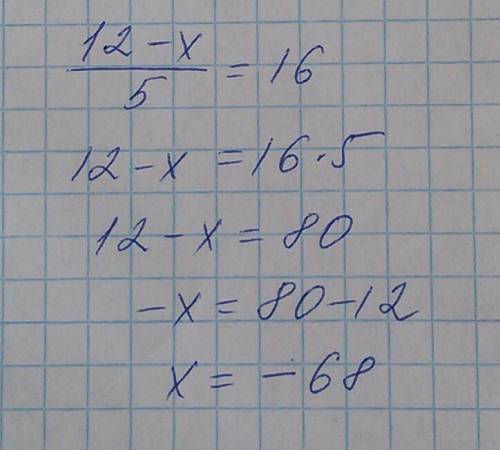 (12 - x)/5 = 16
12 - x = 16 · 5
12 - x = 80
-x = 80 - 12
x = -68